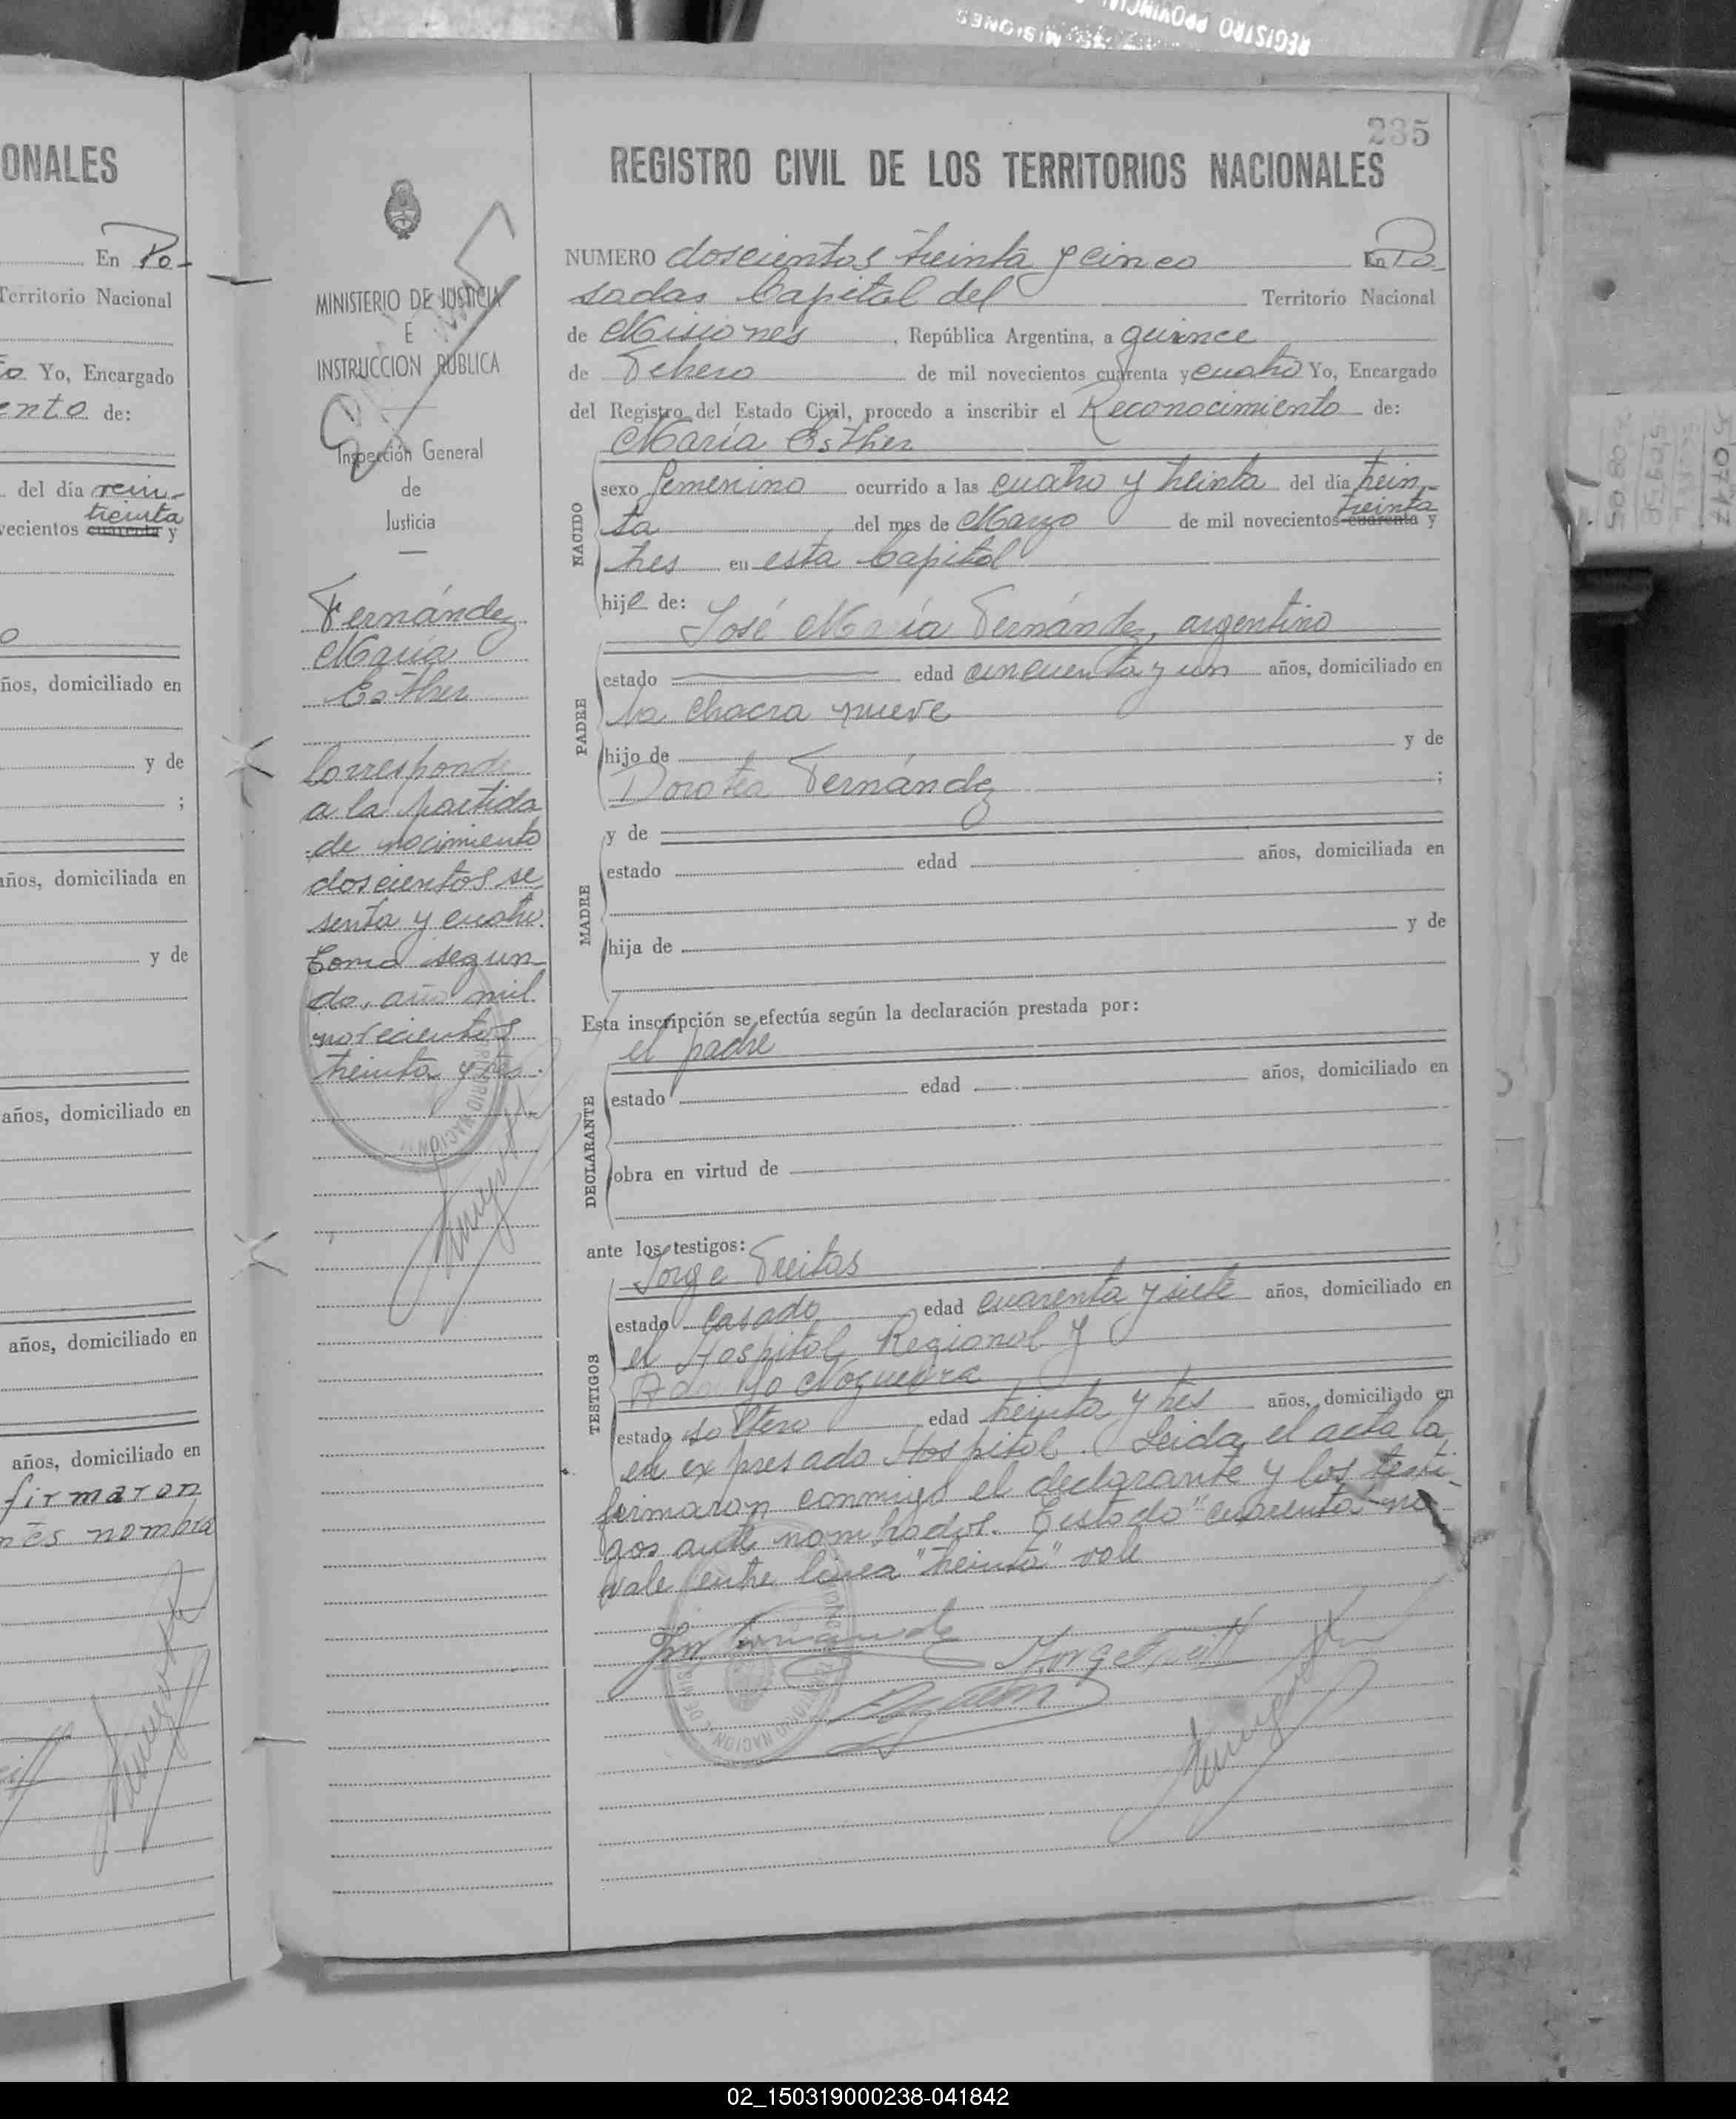 REGISTRO PROVINCIAL
MISIONES
ONALES
En Po-
Territorio Nacional
Yo, Encargado
ento de:
del día vein-
treinta
vecientos cuarenta y
o
ños, domiciliado en
y de
;
años, domiciliada en
y de
años, domiciliado en
años, domiciliado en
años, domiciliado en
firmaron
nombra
MINISTERIO DE JUSTICIA
E
INSTRUCCION PUBLICA
Inspección General
de
Justicia
Fernández
María
Esther
Corresponde
a la partida
de nacimiento
doscientos se
senta y cuatro.
Tomo segun
do, año mil
novecientos
treinta y tres.
235
REGISTRO CIVIL DE LOS TERRITORIOS NACIONALES
NUMERO doscientos treinta y cinco En Po-
sadas Capital del Territorio Nacional
de Misiones, República Argentina, a quince
de Febrero de mil novecientos cuarenta y cuatro Yo, Encargado
del Registro del Estado Civil, procedo a inscribir el Reconocimiento de:
María Esther
NACIDO
sexo femenino ocurrido a las cuatro y treinta del día trein-
treinta
ta del mes de Marzo de mil novecientos cuarenta y
tres en esta Capital
hija de:
José María Fernández, argentino
PADRE
estado edad cincuenta y un años, domiciliado en
la chacra nueve
hijo de y de
Dorotea Fernández ;
y de
MADRE
estado edad años, domiciliada en
hija de y de
Esta inscripción se efectúa según la declaración prestada por:
el padre
DECLARANTE
estado edad años, domiciliado en
obra en virtud de
ante los testigos:
Jorge Freitas
TESTIGOS
estado casado edad cuarenta y siete años, domiciliado en
el Hospital Regional y
Adolfo Noguera
estado soltero edad treinta y tres años, domiciliado en
el expresado Hospital. Leida el acta la
firmaron conmigo el declarante y los testi-
gos ante nombrados. Testado "cuarenta" no
vale entre línea "treinta" vale
02_150319000238-041842